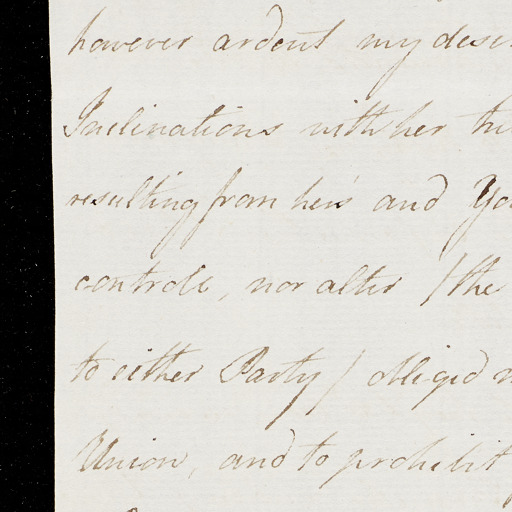 however ardent my desi
Inclinations with her tr
resulting from her's and Yo
controle, nor alter /the
to either Party/ obliged
Union, and to prohibit